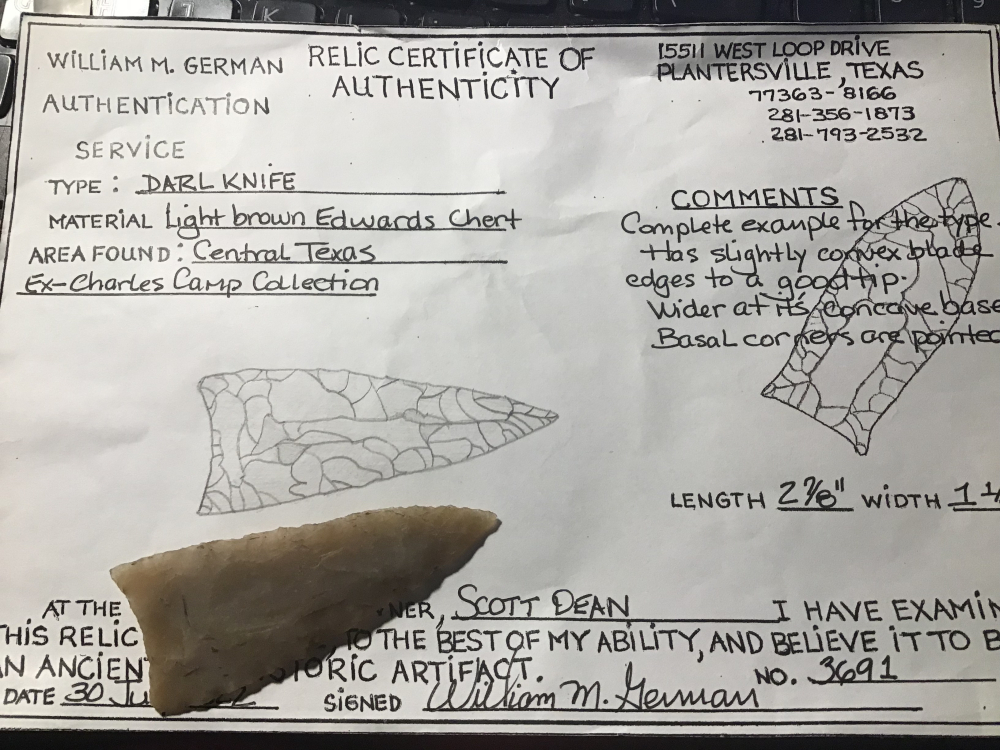 WILLIAM M. GERMAN
AUTHENTICATION
SERVICE
RELIC CERTIFICATE OF
AUTHENTICITY
15511 WEST LOOP DRIVE
PLANTERSVILLE, TEXAS
77363-8166
281-356-1873
281-793-2532
TYPE: DARL KNIFE
MATERIAL Light brown Edwards Chert
AREA FOUND: Central Texas
Ex-Charles Camp Collection
COMMENTS
Complete example for the type.
Has slightly convex blade
edges to a good tip.
Wider at its concave base
Basal corners are pointed
LENGTH 2 7/8" WIDTH 1
AT THE NER, SCOTT DEAN I HAVE EXAMIN
THIS RELIC TO THE BEST OF MY ABILITY, AND BELIEVE IT TO B
AN ANCIENT TORIC ARTIFACT.
NO. 3691
DATE 30 Ju SIGNED William M. German